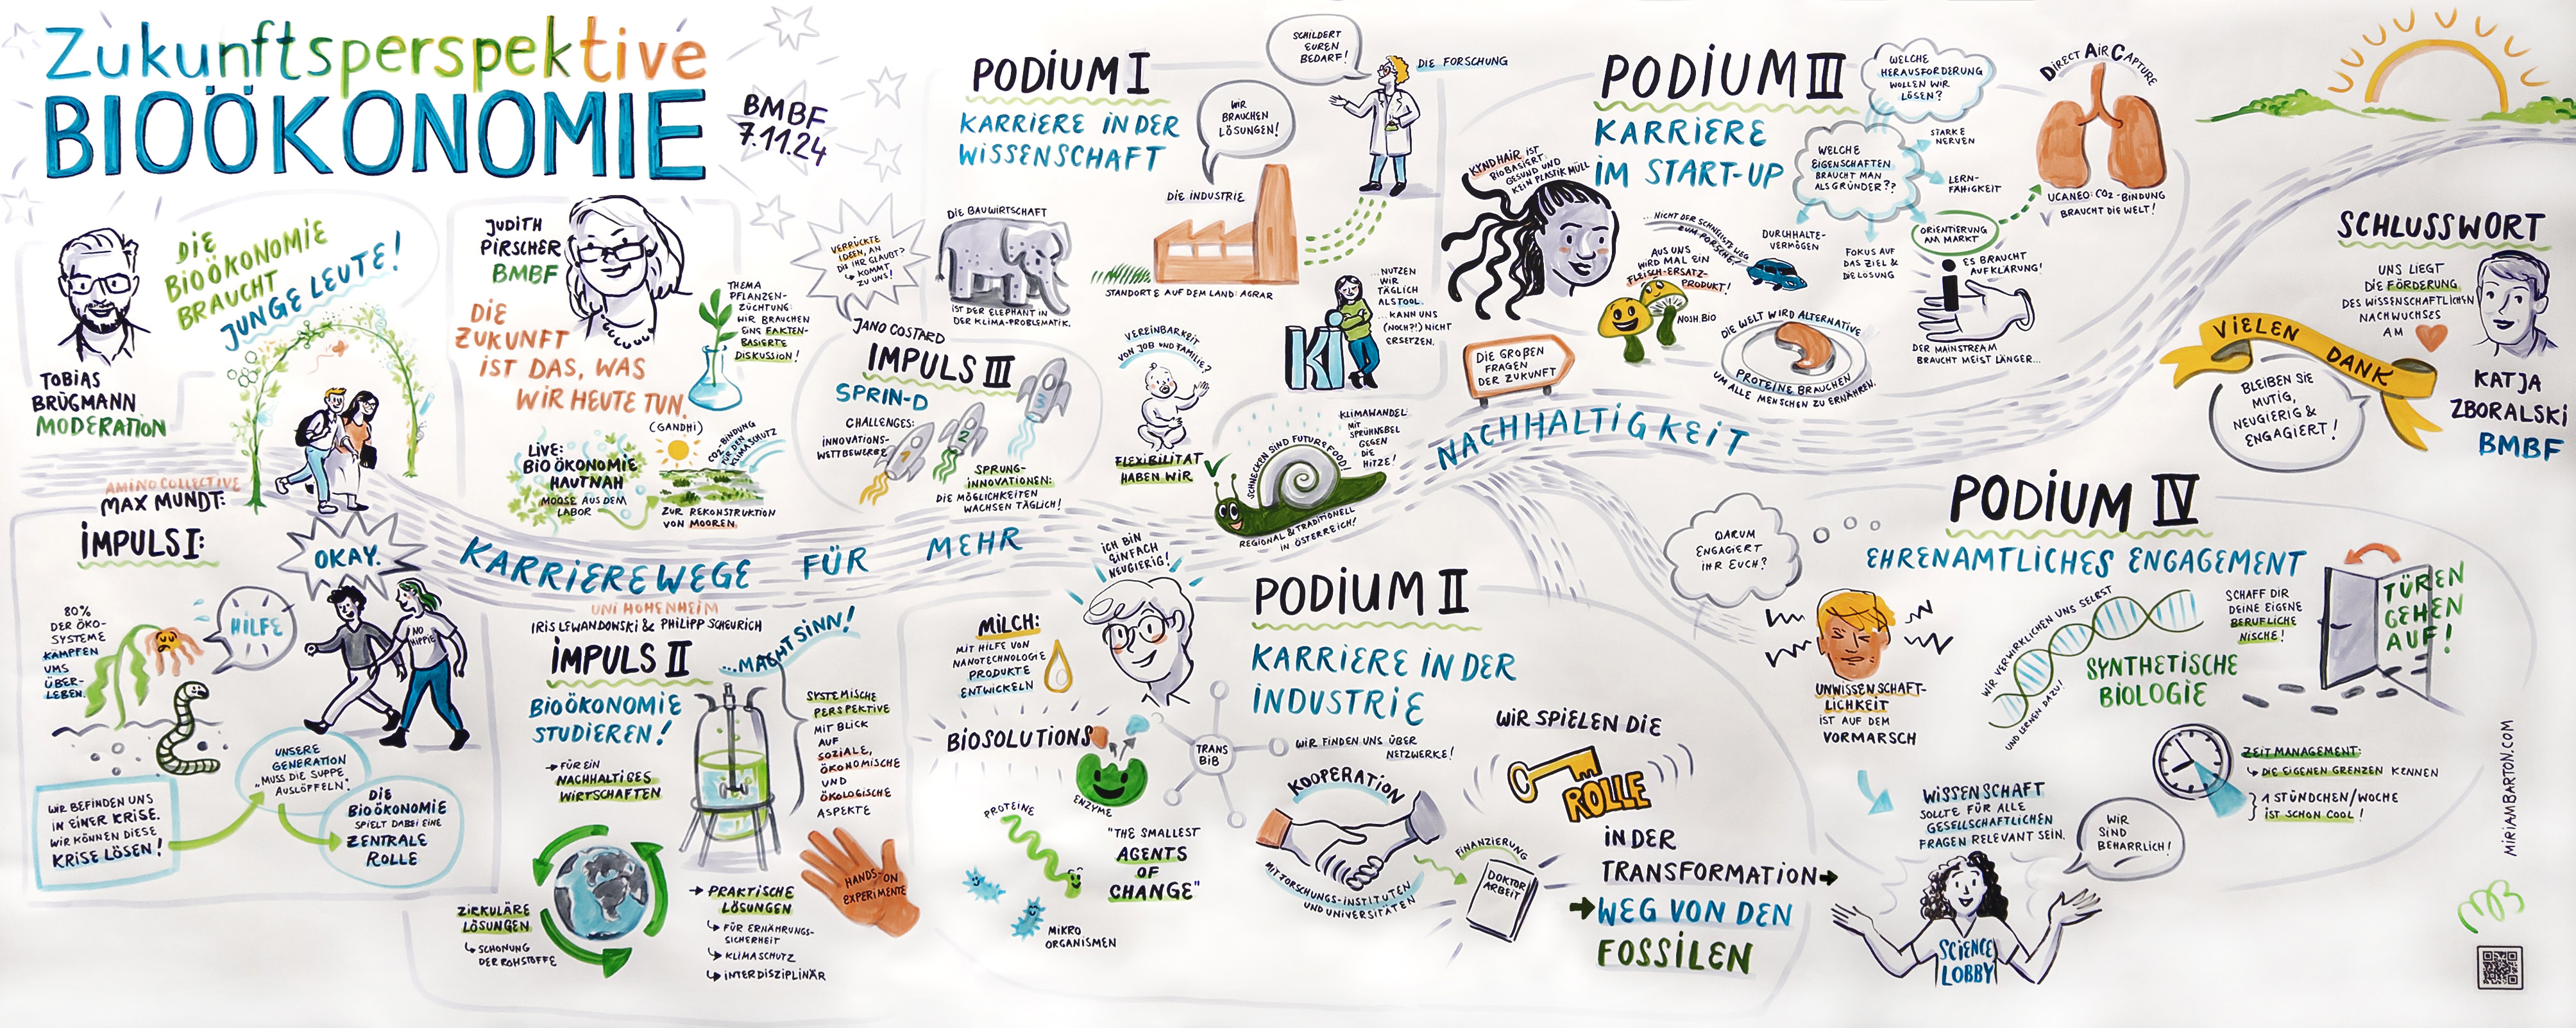 Zukunftsperspektive
BIOÖKONOMIE
BMBF
7.11.24
DIE
BIOÖKONOMIE
BRAUCHT
JUNGE LEUTE!
TOBIAS
BRÜGMANN
MODERATION
JUDITH
PIRSCHER
BMBF
DIE
ZUKUNFT
IST DAS, WAS
WIR HEUTE TUN.
(GANDHI)
THEMA
PFLANZEN-
ZÜCHTUNG:
WIR BRAUCHEN
EINE FAKTEN-
BASIERTE
DISKUSSION!
LIVE:
BIOÖKONOMIE
HAUTNAH
MOOSE AUS DEM
LABOR
CO2-BINDUNG
FÜR DEN
KLIMASCHUTZ
ZUR REKONSTRUKTION
VON MOOREN
AMINO COLLECTIVE
MAX MUNDT:
IMPULS I:
OKAY.
HILFE
NO
HIPPIE
80%
DER ÖKO-
SYSTEME
KÄMPFEN
UMS
ÜBER-
LEBEN.
UNSERE
GENERATION
„MUSS DIE SUPPE
AUSLÖFFELN“.
WIR BEFINDEN UNS
IN EINER KRISE.
WIR KÖNNEN DIESE
KRISE LÖSEN!
DIE
BIOÖKONOMIE
SPIELT DABEI EINE
ZENTRALE
ROLLE
KARRIEREWEGE FÜR MEHR
NACHHALTIGKEIT
UNI HOHENHEIM
IRIS LEWANDOWSKI & PHILIPP SCHEURICH
IMPULS II
...MACHT SINN!
BIOÖKONOMIE
STUDIEREN!
→ FÜR EIN
NACHHALTIGES
WIRTSCHAFTEN
SYSTEMISCHE
PERSPEKTIVE
MIT BLICK
AUF
SOZIALE,
ÖKONOMISCHE
UND
ÖKOLOGISCHE
ASPEKTE
ZIRKULÄRE
LÖSUNGEN
↳ SCHONUNG
DER ROHSTOFFE
→ PRAKTISCHE
LÖSUNGEN
↳ FÜR ERNÄHRUNGS-
SICHERHEIT
↳ KLIMASCHUTZ
↳ INTERDISZIPLINÄR
HANDS-ON
EXPERIMENTE
VERRÜCKTE
IDEEN, AN
DIE IHR GLAUBT?
↳ KOMMT
ZU UNS!
JANO COSTARD
IMPULS III
SPRIN-D
CHALLENGES:
INNOVATIONS-
WETTBEWERBE
1
2
3
SPRUNG-
INNOVATIONEN:
DIE MÖGLICHKEITEN
WACHSEN TÄGLICH!
PODIUM I
KARRIERE IN DER
WISSENSCHAFT
SCHILDERT
EUREN
BEDARF!
DIE FORSCHUNG
WIR
BRAUCHEN
LÖSUNGEN!
DIE INDUSTRIE
STANDORTE AUF DEM LAND: AGRAR
DIE BAUWIRTSCHAFT
IST DER ELEPHANT IN
DER KLIMA-PROBLEMATIK.
VEREINBARKEIT
VON JOB UND FAMILIE?
FLEXIBILITÄT
HABEN WIR
KI
...NUTZEN
WIR
TÄGLICH
ALS TOOL.
...KANN UNS
(NOCH?!) NICHT
ERSETZEN.
KLIMAWANDEL:
MIT
SPRÜHNEBEL
GEGEN
DIE
HITZE!
SCHNECKEN SIND FUTURE FOOD
REGIONAL & TRADITIONELL
IN ÖSTERREICH!
PODIUM II
KARRIERE IN DER
INDUSTRIE
ICH BIN
EINFACH
NEUGIERIG!
MILCH:
MIT HILFE VON
NANOTECHNOLOGIE
PRODUKTE
ENTWICKELN
BIOSOLUTIONS
ENZYME
PROTEINE
"THE SMALLEST
AGENTS
OF
CHANGE"
MIKRO
ORGANISMEN
TRANS
BIB
WIR FINDEN UNS ÜBER
NETZWERKE!
KOOPERATION
MIT FORSCHUNGS-INSTITUTEN
UND UNIVERSITÄTEN
FINANZIERUNG
DOKTOR
ARBEIT
WIR SPIELEN DIE
ROLLE
IN DER
TRANSFORMATION →
→ WEG VON DEN
FOSSILEN
PODIUM III
KARRIERE
IM START-UP
KYNDHAIR IST
BIOBASIERT,
GESUND UND
KEIN PLASTIKMÜLL
WELCHE
HERAUSFORDERUNG
WOLLEN WIR
LÖSEN?
WELCHE
EIGENSCHAFTEN
BRAUCHT MAN
ALS GRÜNDER??
STARKE
NERVEN
LERN-
FÄHIGKEIT
ORIENTIERUNG
AM MARKT
FOKUS AUF
DAS ZIEL &
DIE LÖSUNG
DURCHHALTE-
VERMÖGEN
...NICHT DER SCHNELLSTE WEG
ZUM PORSCHE!
AUS UNS
WIRD MAL EIN
FLEISCH-ERSATZ-
PRODUKT!
NOSH.BIO
DIE GROẞEN
FRAGEN
DER ZUKUNFT
DIE WELT WIRD ALTERNATIVE
PROTEINE BRAUCHEN
UM ALLE MENSCHEN ZU ERNÄHREN.
ES BRAUCHT
AUFKLÄRUNG!
DER MAINSTREAM
BRAUCHT MEIST LÄNGER...
DIRECT AIR CAPTURE
UCANEO: CO2-BINDUNG
BRAUCHT DIE WELT!
SCHLUSSWORT
UNS LIEGT
DIE FÖRDERUNG
DES WISSENSCHAFTLICHEN
NACHWUCHSES
AM
VIELEN DANK
BLEIBEN SIE
MUTIG,
NEUGIERIG &
ENGAGIERT!
KATJA
ZBORALSKI
BMBF
PODIUM IV
EHRENAMTLICHES ENGAGEMENT
WARUM
ENGAGIERT
IHR EUCH?
UNWISSENSCHAFT-
LICHKEIT
IST AUF DEM
VORMARSCH
WIR VERWIRKLICHEN UNS SELBST
UND LERNEN DAZU!
SYNTHETISCHE
BIOLOGIE
SCHAFF DIR
DEINE EIGENE
BERUFLICHE
NISCHE!
TÜREN
GEHEN
AUF!
ZEITMANAGEMENT:
↳ DIE EIGENEN GRENZEN KENNEN
1 STÜNDCHEN/WOCHE
IST SCHON COOL!
WISSENSCHAFT
SOLLTE FÜR ALLE
GESELLSCHAFTLICHEN
FRAGEN RELEVANT SEIN.
WIR
SIND
BEHARRLICH!
SCIENCE
LOBBY
MIRIAMBARTON.COM
MB